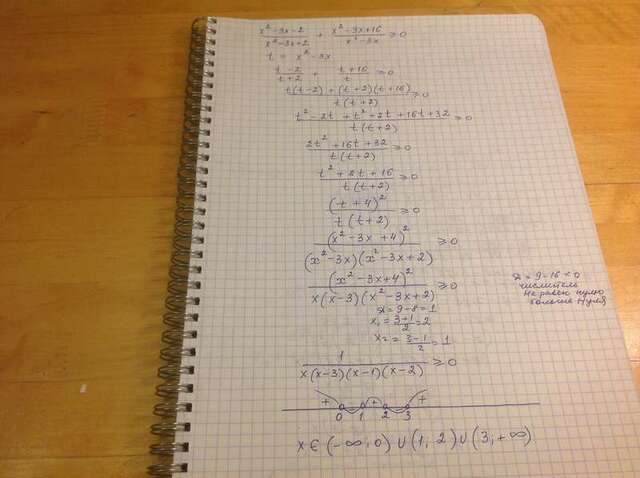 (x² - 3x - 2)/(x² - 3x + 2) + (x² - 3x + 16)/(x² - 3x) ≥ 0
t = x² - 3x
(t - 2)/(t + 2) + (t + 16)/t ≥ 0
(t(t - 2) + (t + 2)(t + 16))/(t(t + 2)) ≥ 0
(t² - 2t + t² + 2t + 16t + 32)/(t(t + 2)) ≥ 0
(2t² + 16t + 32)/(t(t + 2)) ≥ 0
(t² + 2t + 16)/(t(t + 2)) ≥ 0
(t + 4)²/(t(t + 2)) ≥ 0
(x² - 3x + 4)²/((x² - 3x)(x² - 3x + 2)) ≥ 0
(x² - 3x + 4)²/(x(x - 3)(x² - 3x + 2)) ≥ 0
D = 9 - 16 < 0
числитель
не равен нулю
больше нуля
D = 9 - 8 = 1
x₁ = (3 + 1)/2 = 2
x₂ = (3 - 1)/2 = 1
1/(x(x - 3)(x - 1)(x - 2)) ≥ 0
+ - + - +
0 1 2 3
x ∈ (-∞; 0) ∪ (1; 2) ∪ (3; +∞)